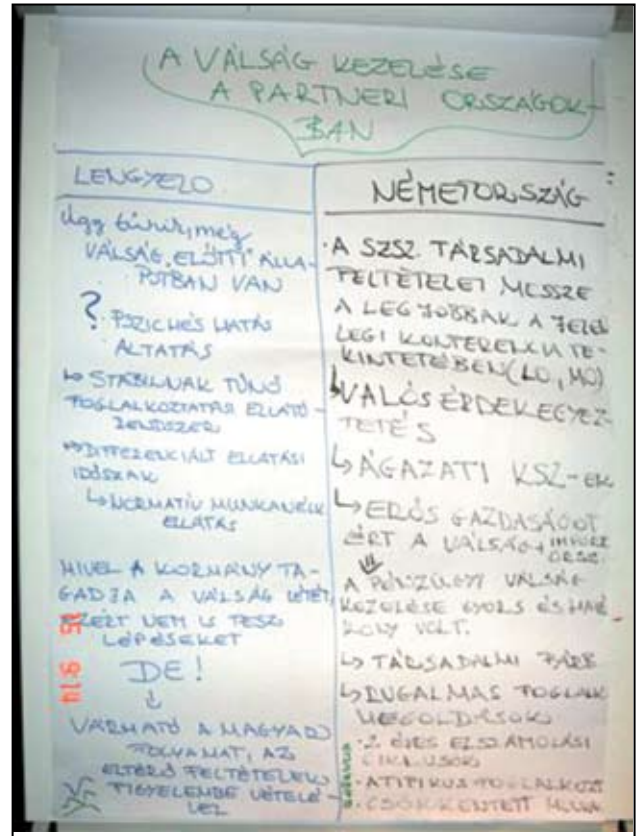 A VÁLSÁG KEZELÉSE
A PARTNERI ORSZÁGOK-
BAN
LENGYELO.
Úgy tűnik, még
VÁLSÁG „ELŐTTI” ÁLLA-
POTBAN VAN
? PSZICHÉS HATÁS
ALTATÁS
↳ STABILNAK TŰNŐ
FOGLALKOZTATÁS ELLÁTÓ-
RENDSZER
DIFFERENCIÁLT ELLÁTÁSI
IDŐSZAK
↳ NORMATÍV MUNKANÉLK
ELLÁTÁS
MIVEL A KORMÁNY TA-
GADJA A VÁLSÁG LÉTÉT,
EZÉRT NEM IS TESZ
LÉPÉSEKET
DE!
↓
VÁRHATÓ A MAGYAR
FOLYAMAT, AZ
ELTÉRŐ FELTÉTELEK
FIGYELEMBE VÉTELÉ-
VEL
NÉMETORSZÁG
· A SZSZ. TÁRSADALMI
FELTÉTELEI MESSZE
A LEGJOBBAK A JELEN
LEGI KONFERENCIA TE-
KINTETÉBEN (LO, MO)
↳ VALÓS ÉRDEKEGYEZ-
TETÉS
↳ ÁGAZATI KSZ-EK
↳ ERŐS GAZDASÁGOT
ÉRT A VÁLSÁG +
ORSZ.
⇓
A PÉNZÜGYI VÁLSÁG
KEZELÉSE GYORS ÉS HATÉ
KONY VOLT.
↳ TÁRSADALMI PÁRB
↳ RUGALMAS FOGLALK
MEGOLDÁSOK
· 2 ÉVES ELSZÁMOLÁSI
CIKLUSOK
· ATIPIKUS FOGLALKOZT
· CSÖKKENTETT MUNKA